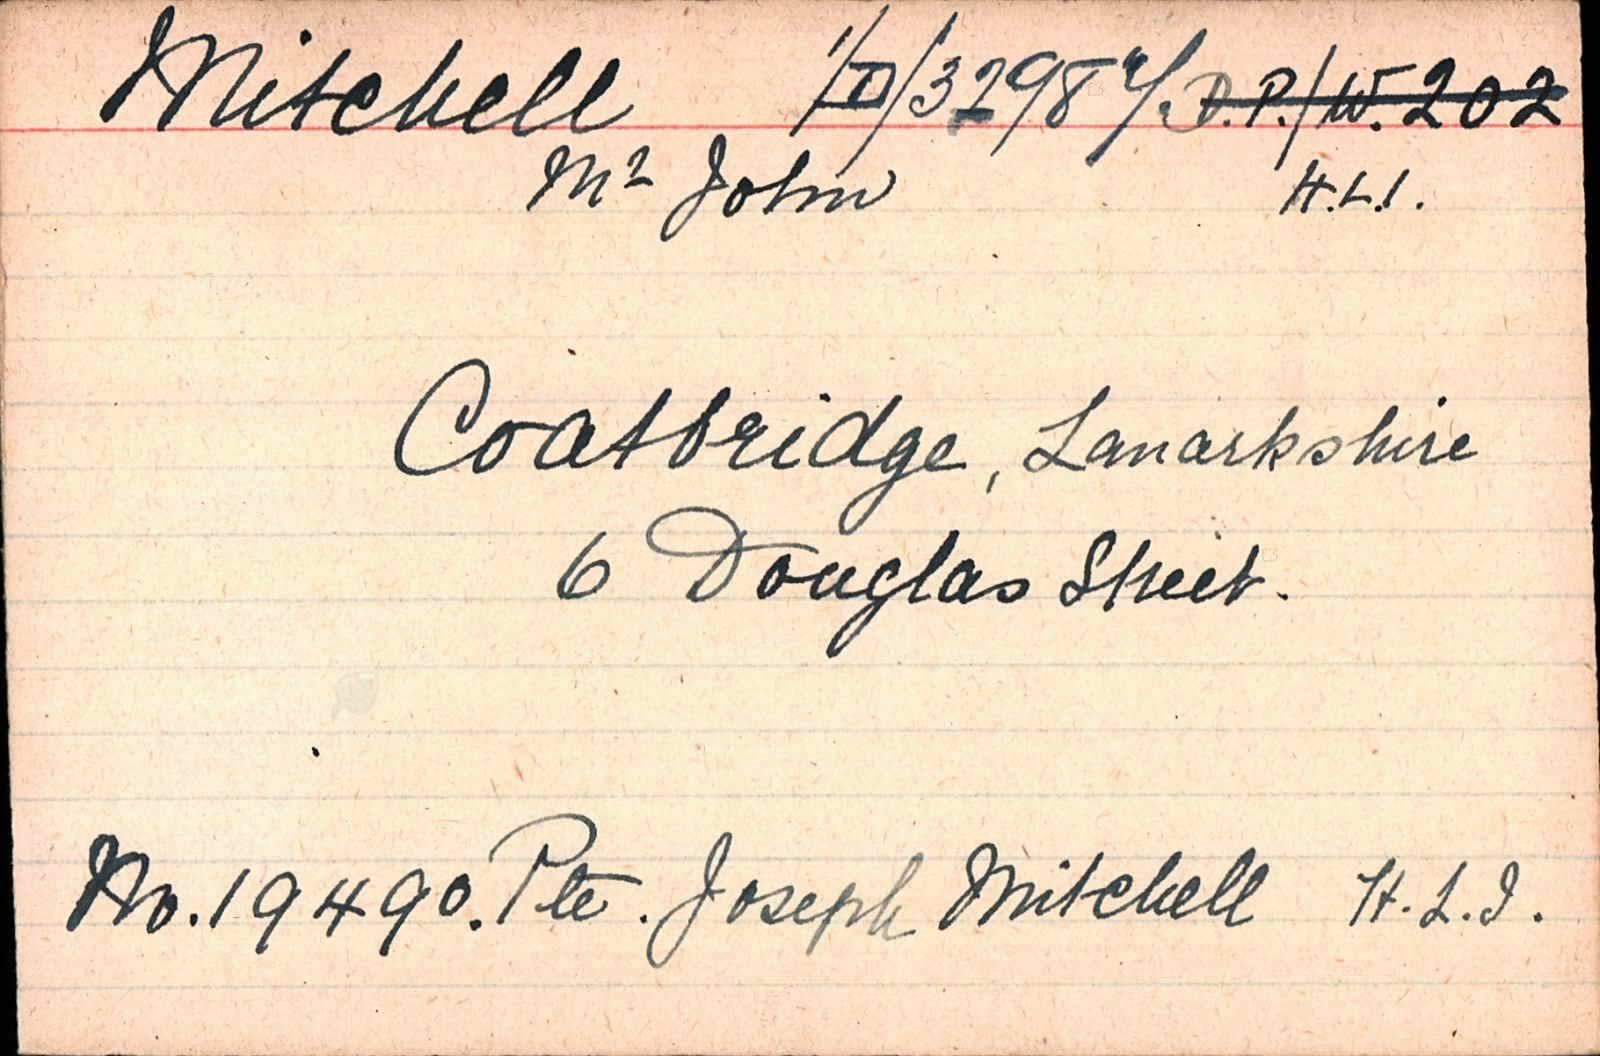 Mitchell 1/D/32984/. D.P./W. 202
Mr John H.L.I.
Coatbridge, Lanarkshire
6 Douglas Street.
No. 19490. Pte. Joseph Mitchell H.L.I.